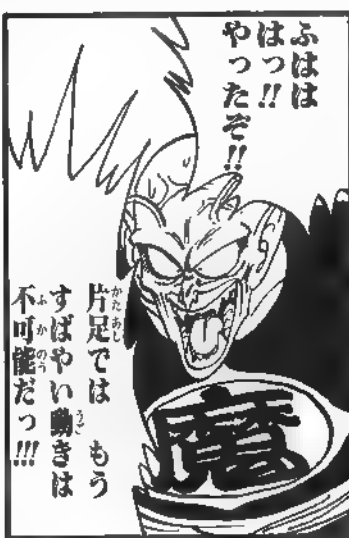 ふはは
はっ!!
やったぞ!!
片足では もう
すばやい動きは
不可能だっ!!!
魔